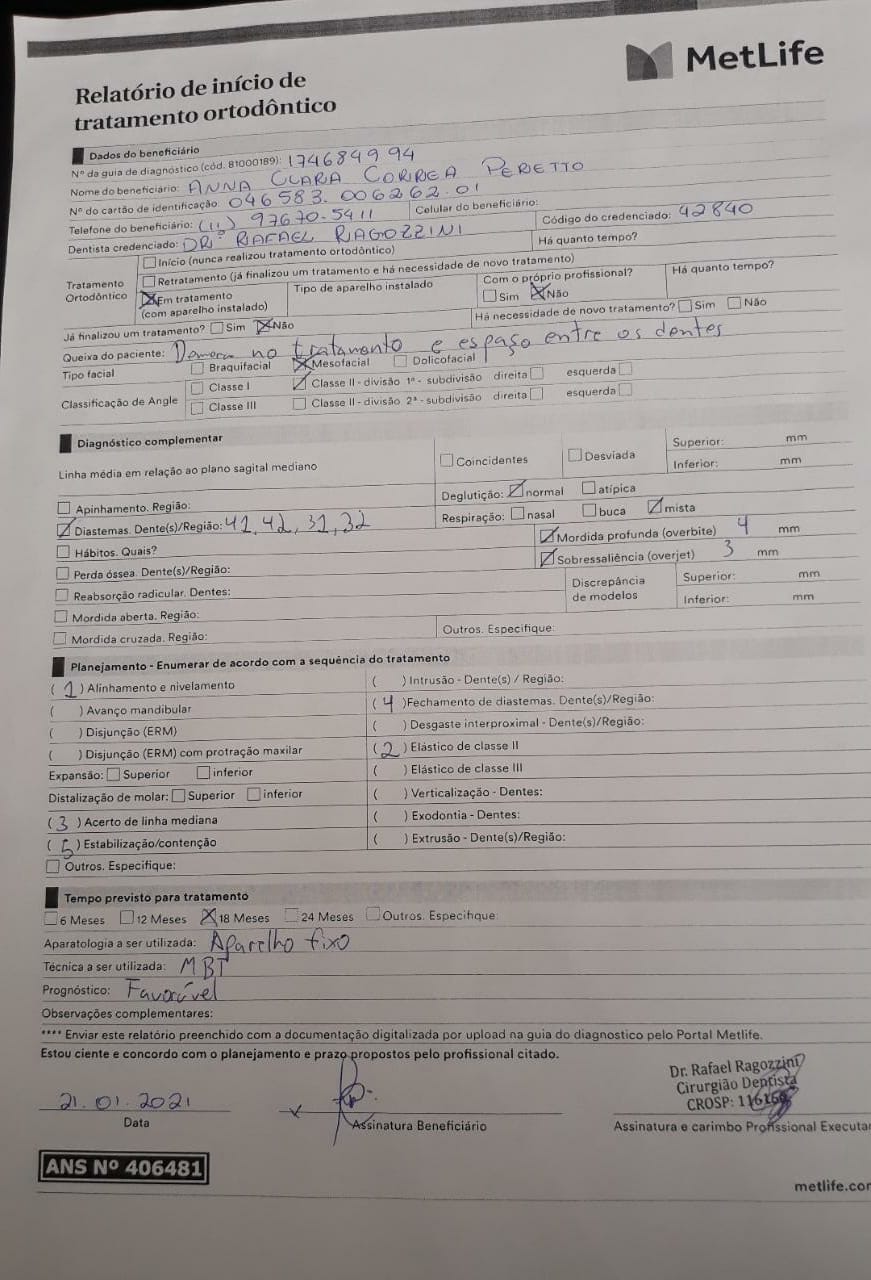 MetLife
Relatório de início de
tratamento ortodôntico
Dados do beneficiário
Nº da guia de diagnóstico (cód. 81000189): 174684994
Nome do beneficiário: ANNA CLARA CORREA PERETTO
Nº do cartão de identificação: 046583.006262.01
Telefone do beneficiário: (11) 97670.5411 Celular do beneficiário:
Dentista credenciado: DRº RAFAEL RAGOZZINI Código do credenciado: 42840
Tratamento Ortodôntico
Início (nunca realizou tratamento ortodôntico) Há quanto tempo?
Retratamento (já finalizou um tratamento e há necessidade de novo tratamento)
Em tratamento (com aparelho instalado) Tipo de aparelho instalado Com o próprio profissional? Sim Não Há quanto tempo?
Já finalizou um tratamento? Sim Não Há necessidade de novo tratamento? Sim Não
Queixa do paciente: Demora no tratamento e espaço entre os dentes
Tipo facial Braquifacial Mesofacial Dolicofacial
Classificação de Angle
Classe I Classe II - divisão 1ª - subdivisão direita esquerda
Classe III Classe II - divisão 2ª - subdivisão direita esquerda
Diagnóstico complementar
Linha média em relação ao plano sagital mediano Coincidentes Desviada Superior: mm
Inferior: mm
Apinhamento. Região: Deglutição: normal atípica
Diastemas. Dente(s)/Região: 41, 42, 31, 32 Respiração: nasal buca mista
Hábitos. Quais? Mordida profunda (overbite) 4 mm
Perda óssea. Dente(s)/Região: Sobressaliência (overjet) 3 mm
Reabsorção radicular. Dentes: Discrepância de modelos Superior: mm
Mordida aberta. Região: Inferior: mm
Mordida cruzada. Região: Outros. Especifique:
Planejamento - Enumerar de acordo com a sequência do tratamento
( 1 ) Alinhamento e nivelamento ( ) Intrusão - Dente(s) / Região:
( ) Avanço mandibular ( 4 )Fechamento de diastemas. Dente(s)/Região:
( ) Disjunção (ERM) ( ) Desgaste interproximal - Dente(s)/Região:
( ) Disjunção (ERM) com protração maxilar ( 2 ) Elástico de classe II
Expansão: Superior inferior ( ) Elástico de classe III
Distalização de molar: Superior inferior ( ) Verticalização - Dentes:
( 3 ) Acerto de linha mediana ( ) Exodontia - Dentes:
( 5 ) Estabilização/contenção ( ) Extrusão - Dente(s)/Região:
Outros. Especifique:
Tempo previsto para tratamento
6 Meses 12 Meses 18 Meses 24 Meses Outros. Especifique:
Aparatologia a ser utilizada: Aparelho fixo
Técnica a ser utilizada: MBT
Prognóstico: Favorável
Observações complementares:
**** Enviar este relatório preenchido com a documentação digitalizada por upload na guia do diagnostico pelo Portal Metlife.
Estou ciente e concordo com o planejamento e prazo propostos pelo profissional citado.
Dr. Rafael Ragozzini
Cirurgião Dentista
CROSP:
21.01.2021
Data Assinatura Beneficiário Assinatura e carimbo Profissional Executa
ANS Nº 406481
metlife.cor